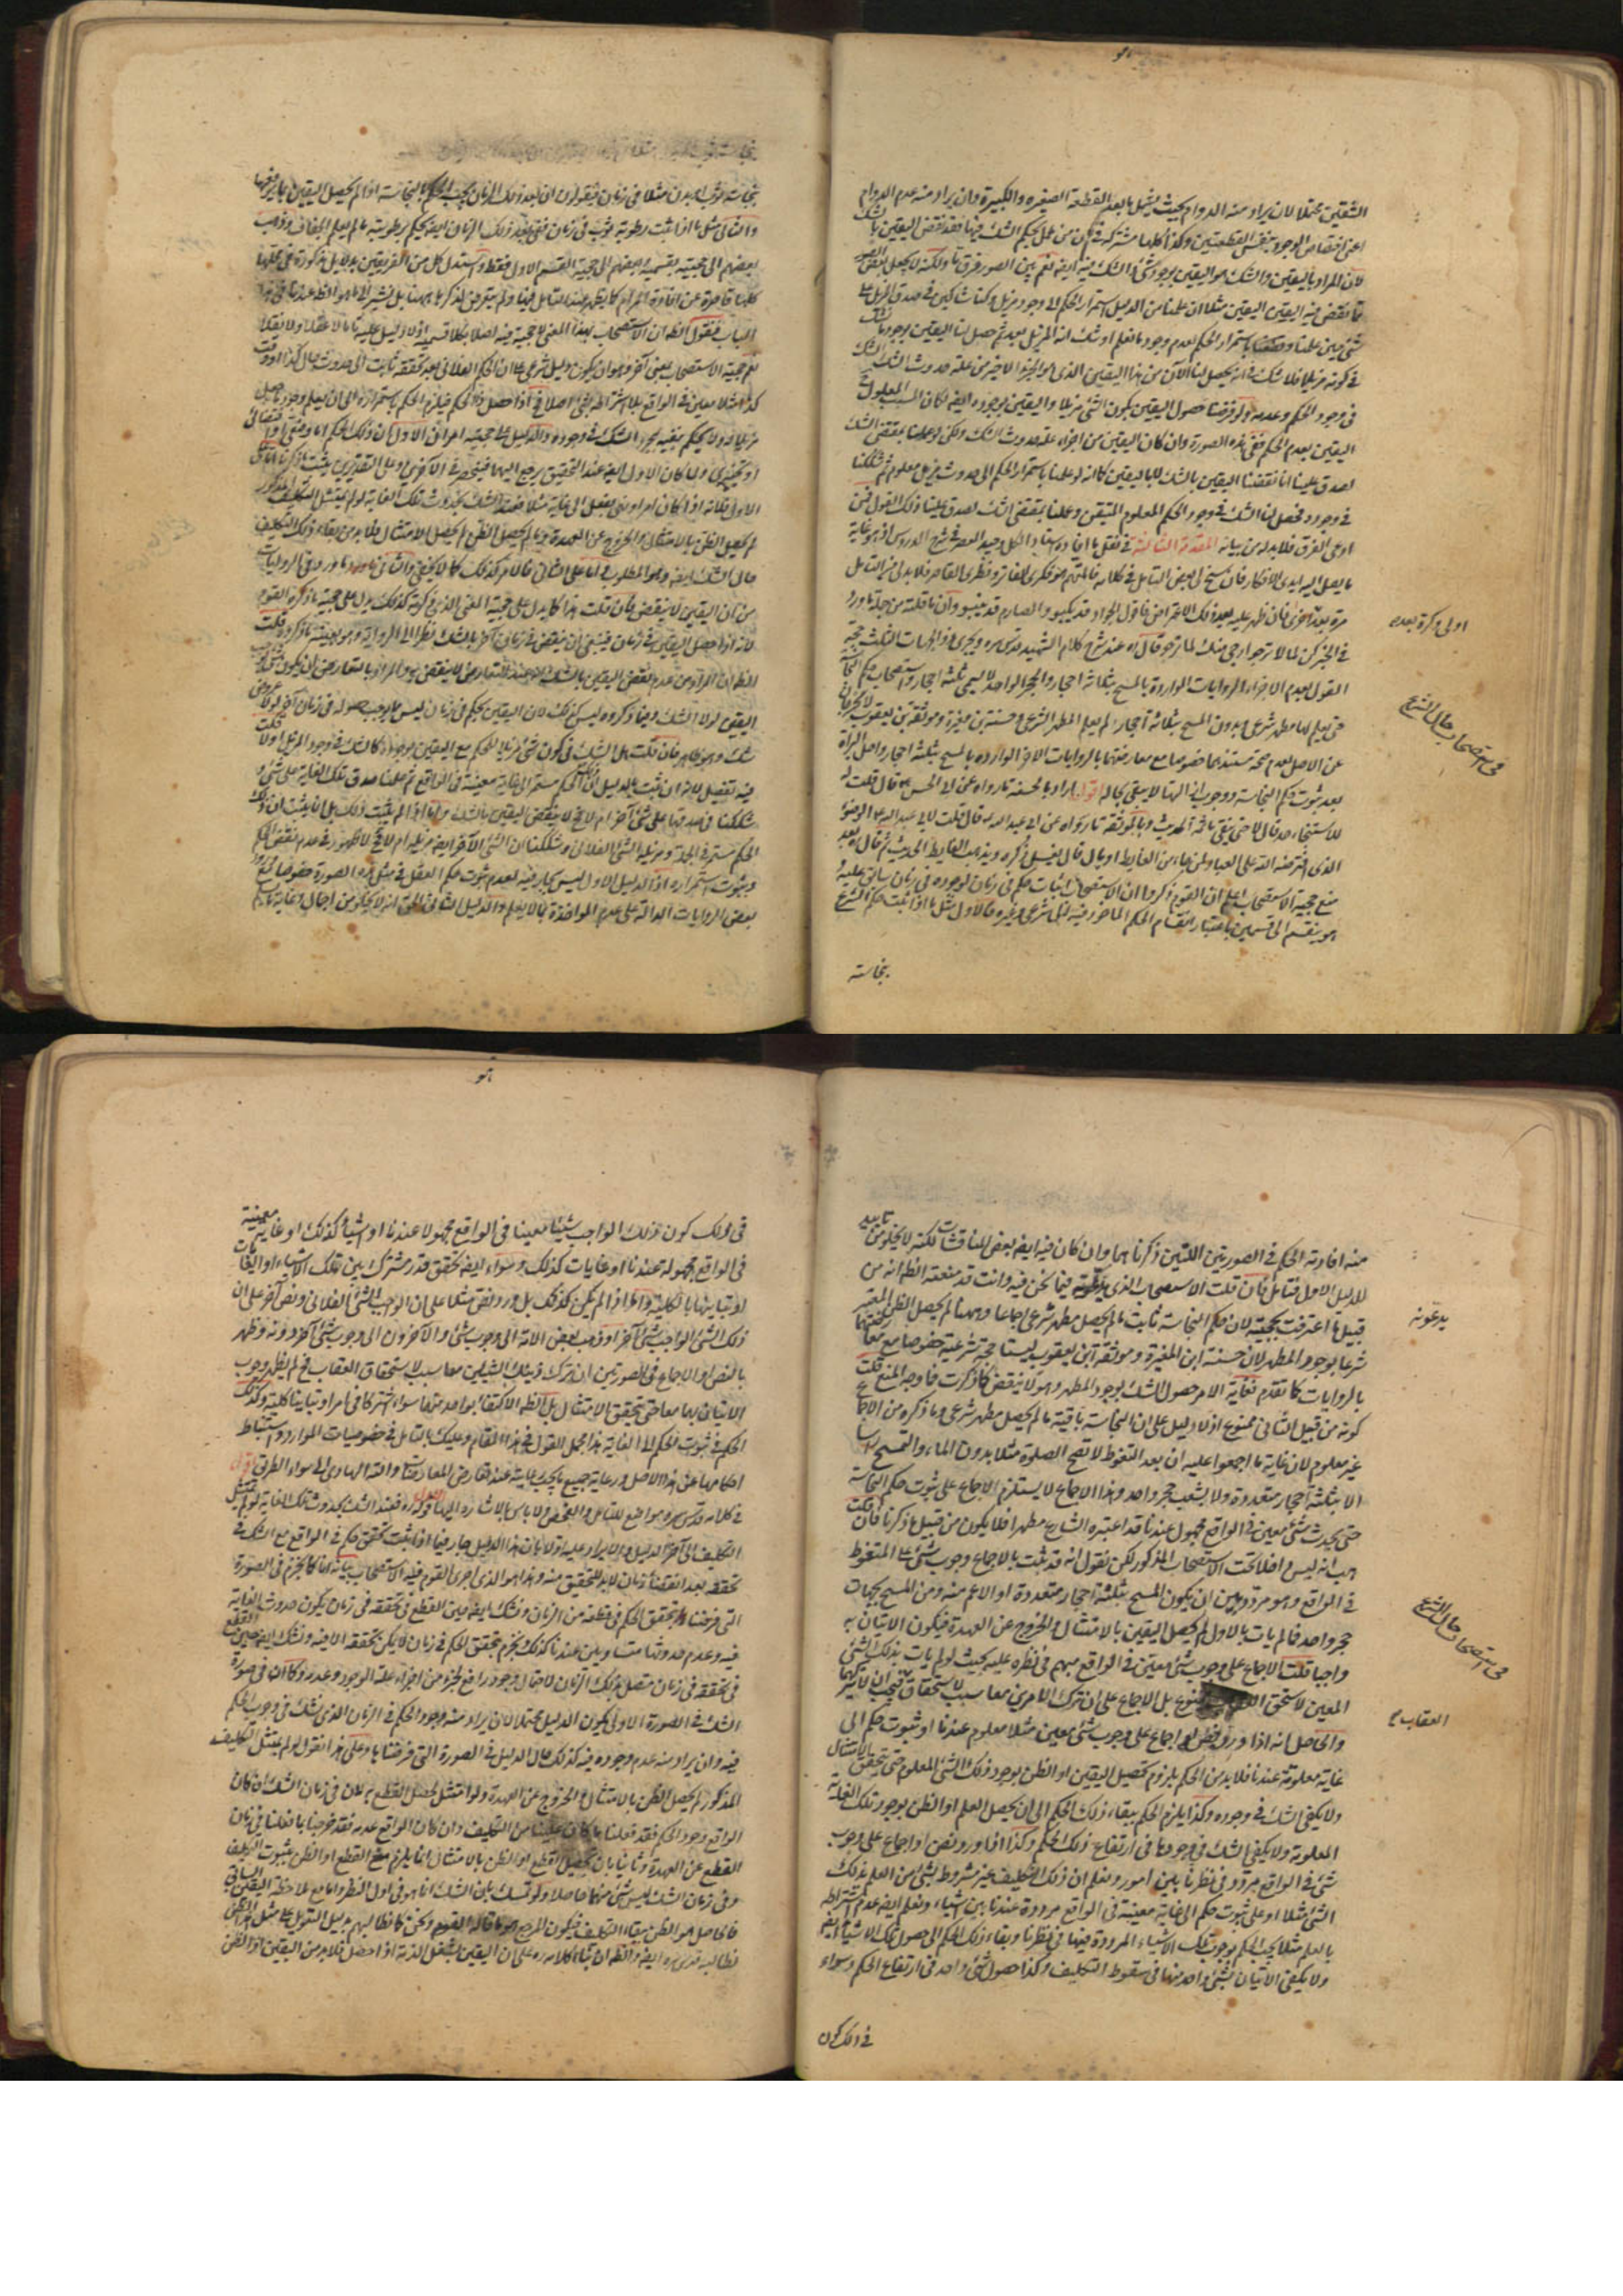 الشقين محتملا لان يراد منه الدوام بحيث يشمل ما بعد القطعة الصغيرة والكبيرة وان يراد منه عدم الدوام
اعنى اختصاص الوجود بنفس القطعتين وكذا كلما مشترك فى كون من عمل بحكم الشك فيها فقد نقض اليقين بالشك
لان المراد باليقين والشك هو اليقين بوجود شئ والشك فيه ايضا نعم بين الصور فرق ما ولكنه لا يجعل بعض الصور
مما نقض فيه اليقين اليقين مثلا ان علمنا من الدليل استمرار الحكم الى وجود مزيل وكنا شاكين فى صدق المزيل على
شئ معين علمنا وحكمنا باستمرار الحكم لعدم وجود ما نعلم او شك انه المزيل بعد ثم حصل لنا اليقين بوجود ما نشك
فى كونه مزيلا فلا شك فى انه يحصل لنا الآن من هذا اليقين الذى هو الجزء الاخير من علة حدوث الشك الشك
فى وجود الحكم وعدمه ولو فرضنا حصول اليقين بكون الشئ مزيلا واليقين بوجوده ايضا لكان السبب المعلول
اليقين بعدم الحكم ففى هذه الصورة وان كان اليقين من اجزاء علة حدوث الشك ولكن لو عملنا بمقتضى الشك
لصدق علينا انا نقضنا اليقين بالشك لا باليقين كما انه لو علمنا باستمرار الحكم الى حدوث مزيل معلوم ثم شككنا
فى وجوده فحصل لنا الشك فى وجود الحكم المعلوم المتيقن وعملنا بمقتضى الشك لصدق علينا ذلك القول فمن
ادعى الفرق فلا بد له من بيانه المقدمة الثالثة فى نقل ما افاده استاد الكل وحيد العصر فى شرح الدروس اذ هو غاية
ما يصل اليه ايدى الافكار فان سنح لى بعض التأمل فى كلامه فالمتهم هو فكرى الفاتر ونظرى القاصر فلا بد لى من التأمل
مرة بعد اخرى فان ظهر عليه بعد ذلك الاعتراض فاقول الجواد قد يكبو والصارم قد ينبو وان ما قلته من جملة ما ورد
فى الخبر كن لما لا ترجو ارجى منك لما ترجو قال ره عند شرح كلام الشهيد قدس سره ويجزى ذو الجهات الثلث حجة
القول بعدم الاجزاء الروايات الواردة بالمسح بثلثة احجار والحجر الواحد لا يسمى ثلثة احجار واستصحاب حكم النجاسة
حتى يعلم لها مطهر شرعى وبدون المسح بثلاثة احجار لم يعلم المطهر الشرعى وحسنة بن مغيرة وموثقة بن يعقوب لا يخرجان
عن الاصل لعدم صحة مستندهما خصوصا مع معارضتهما بالروايات الاخر الواردة بالمسح بثلثة احجار واصل البراءة
بعد ثبوت حكم النجاسة ووجوب ازالتها لا يبقى بحاله اقول اراد بالحسنة ما رواه عن ابى الحسن ع قال قلت له
للاستنجاء حد قال لا حتى ينقى ما ثمة الحديث وبالموثقة ما رواه عن ابى عبد الله ع قال قلت لابى عبد الله ع الوضوء
الذى افترضه الله على العباد لمن جاء من الغايط او بال قال يغسل ذكره ويذهب الغايط الحديث ثم قال ره بعد
منع حجية الاستصحاب اعلم ان القوم ذكروا ان الاستصحاب اثبات حكم فى زمان لوجوده فى زمان سابق عليه و
هو ينقسم الى قسمين باعتبار انقسام الحكم الماخوذ فيه الى شرعى وغيره فالاول مثل ما اذا ثبت حكم الشرع
نجاسته
اولى وكرة بعد
فى استصحاب حال الشرع
نجاسة ثوب او بدن مثلا فى زمان فيقولون ان بعد ذلك الزمان يجب الحكم بالنجاسة اذا لم يحصل اليقين بما يرفعها
والثانى مثل ما اذا ثبت رطوبة ثوب فى زمان ففى بعد ذلك الزمان ايضا يحكم برطوبته ما لم يعلم الجفاف وذهب
بعضهم الى حجيته بقسميه وبعضهم الى حجية القسم الاول فقط واستدل كل من الفريقين بدلايل مذكورة فى محلها
كلها قاصرة عن افادة المرام كما يظهر عند التأمل فيها ولم نتعرض لذكرها ههنا بل نشير الى ما هو الظ عندنا فى هذا
الباب فنقول الظ ان الاستصحاب بهذا المعنى لا حجية فيه اصلا بكلا قسميه اذ لا دليل عليه تاما لا عقلا ولا نقلا
نعم حجية الاستصحاب بمعنى آخر وهو ان يكون دليل شرعى على ان الحكم الفلانى بعد تحققه ثابت الى حدوث حال كذا او وقت
كذا مثلا معين فى الواقع بلا اشتراطه بشئ اصلا فح اذا حصل ذلك الحكم فيلزم الحكم باستمراره الى ان يعلم وجود ما جعل
مزيلا له ولا يحكم بنفيه بمجرد الشك فى وجوده والدليل على حجيته امران الاول ان ذلك الحكم اما وضعى او اقتضائى
او تخييرى ولما كان الاول ايضا عند التحقيق يرجع اليهما فينحصر فى الآخرين وعلى التقديرين يثبت ما ذكرنا اما على
الاول فلانه اذا كان امر او نهى بفعل الى غاية مثلا فعند الشك بحدوث تلك الغاية لو لم يمتثل التكليف المذكور
لم يحصل الظن بالامتثال والخروج عن العهدة وما لم يحصل الظن لم يحصل الامتثال فلا بد من بقاء ذلك التكليف
حال الشك ايضا وهو المطلوب واما على الثانى فالامر كذلك كما لا يخفى والثانى ما ورد فى الروايات
من ان اليقين لا ينقض بالشك فان قلت هذا كما يدل على حجية المعنى الذى ذكرته كذلك يدل على حجية ما ذكره القوم
لانه اذا حصل اليقين فى زمان فينبغى ان لا ينقض فى زمان آخر بالشك نظرا الى الرواية وهو بعينه ما ذكروه قلت
الظ ان المراد من عدم نقض اليقين بالشك انه عند التعارض لا ينقض به والمراد بالتعارض ان يكون شئ يوجب
اليقين لولا الشك وفيما ذكروه ليس كذلك لان اليقين بحكم فى زمان ليس مما يوجب حصوله فى زمان آخر لولا عروض
شك وهو ظاهر فان قلت هل الشك فى كون شئ مزيلا للحكم مع اليقين بوجوده كالشك فى وجود المزيل او لا قلت
فيه تفصيل لانه ان ثبت بالدليل ان ذلك الحكم مستمر الى غاية معينة فى الواقع ثم علمنا صدق تلك الغاية على شئ و
شككنا فى صدقها على شئ آخر ام لا فح لا ينقض اليقين بالشك واما اذا لم يثبت ذلك بل انما يثبت ان ذلك
الحكم مستمر فى الجملة ومزيله الشئ الفلانى وشككنا ان الشئ الآخر ايضا مزيله ام لا فح لا ظهور فى عدم نقض الحكم
وثبوت استمراره اذ الدليل الاول ليس بجار فيه لعدم ثبوت حكم العقل فى مثل هذه الصورة خصوصا مع ورود
بعض الروايات الدالة على عدم المؤاخذة بما لا يعلم والدليل الثانى الحق انه لا يخلو من اجمال وغاية ما يسلم
منه افادته الحكم فى الصورتين اللتين ذكرناهما وان كان فيه ايضا بعض المناقشات لكنه لا يخلو من تاييد
للدليل الاول فتأمل فان قلت الاستصحاب الذى يدعونه فيما نحن فيه وانت قد منعته الظ انه من
قبيل ما اعترفت بحجيته لان حكم النجاسة ثابت ما لم يحصل مطهر شرعى اجماعا وههنا لم يحصل الظن المعتبر
شرعا بوجود المطهر لان حسنة ابن المغيرة وموثقة ابن يعقوب ليستا حجة شرعية خصوصا مع معارضتهما
بالروايات كما تقدم فغاية الامر حصول الشك بوجود المطهر وهو لا ينقض كما ذكرت فما وجه المنع قلت
كونه من قبيل الثانى ممنوع اذ لا دليل على ان النجاسة باقية ما لم يحصل مطهر شرعى وما ذكره من الاجماع
غير معلوم لان غاية ما اجمعوا عليه ان بعد التغوط لا تصح الصلوة مثلا بدون الماء والتمسح راسا
الا بثلثة احجار متعددة ولا بشعب حجر واحد وهذا الاجماع لا يستلزم الاجماع على ثبوت حكم النجاسة
حتى يحدث شئ معين فى الواقع مجهول عندنا قد اعتبره الشارع مطهرا فلا يكون من قبيل ما ذكرنا فان قلت
هب انه ليس داخلا تحت الاستصحاب المذكور لكن نقول انه قد ثبت بالاجماع وجوب شئ على المتغوط
فى الواقع وهو مردد بين ان يكون المسح بثلثة احجار متعددة او الاعم منه ومن المسح بجهات
حجر واحد فما لم يات بالاول لم يحصل اليقين بالامتثال والخروج عن العهدة فيكون الاتيان به
واجبا قلت الاجماع على وجوب شئ معين فى الواقع مبهم فى نظره عليه بحيث لو لم يات بذلك الشئ
المعين لاستحق ممنوع بل الاجماع على ان ترك الامرين معا سبب لاستحقاق فيجب ان لا يتركهما
والحاصل انه اذا ورد نص او اجماع على وجوب شئ معين مثلا معلوم عندنا او ثبوت حكم الى
غاية معلومة عندنا فلا بد من الحكم بلزوم تحصيل اليقين او الظن بوجود ذلك الشئ المعلوم حتى يتحقق الامتثال
ولا يكفى الشك فى وجوده وكذا يلزم الحكم ببقاء ذلك الحكم الى ان يحصل العلم او الظن بوجود تلك الغاية
المعلومة ولا يكفى الشك فى وجودها فى ارتفاع ذلك الحكم وكذا اذا ورد نص او اجماع على وجوب
شئ فى الواقع مردد فى نظرنا بين امور ونعلم ان ذلك التكليف غير مشروط بشئ من العلم بذلك
الشئ مثلا او على ثبوت حكم الى غاية معينة فى الواقع مرددة عندنا بين اشياء ونعلم ايضا عدم اشتراطه
بالعلم مثلا يجب الحكم بوجوب تلك الاشياء المرددة فيها فى نظرنا وبقاء ذلك الحكم الى حصول تلك الاشياء ايضا
ولا يكفى الاتيان بشئ واحد منها فى سقوط التكليف وكذا حصول شئ واحد فى ارتفاع الحكم وسواء
فى ذلك كون
يدعونه
فى استصحاب حال الشرع
العقاب
فى ذلك كون ذلك الواجب شيئا معينا فى الواقع مجهولا عندنا او شيأ كذلك او غاية معينة
فى الواقع مجهولة عندنا او غايات كذلك وسواء ايضا تحقق قدر مشترك بين تلك الاشياء او الغايات
او تباينها بالكلية واما اذا لم يكن كذلك بل ورد نص مثلا على ان الواجب الشئ الفلانى ونص آخر على ان
ذلك الشئ الواجب شئ آخر او ذهب بعض الامة الى وجوب شئ والآخرون الى وجوب شئ آخر دونه وظهر
بالنص او الاجماع فى الصورتين ان ترك ذينك الشيئين معا سبب لاستحقاق العقاب فح لم يظهر وجوب
الاتيان بهما معا حتى يتحقق الامتثال بل الظ الاكتفاء بواحد منهما سواء اشتركا فى امر او تباينا كلية وكذلك
الحكم فى ثبوت الحكم الى الغاية هذا مجمل القول فى هذا المقام وعليك بالتأمل فى خصوصيات الموارد واستنباط
احكامها عن هذا الاصل ورعاية جميع ما يجب رعايته عند تعارض المعارضات والله الهادى الى سواء الطريق
فى كلامه قدس سره مواضع للتأمل والتفحص ولا باس بالاشارة اليها الاول قوله ره فعند الشك بحدوث تلك الغاية لو لم يمتثل
التكليف الى آخر الدليل والايراد عليه اولا بان هذا الدليل جار فيما اذا ثبت تحقق حكم فى الواقع مع الشك فى
تحققه بعد انقضاء زمان لا بد للتحقق منه وهذا هو الذى اجرى القوم فيه الاستصحاب بيانه انا كما نجزم فى الصورة
التى فرضتها بتحقق الحكم فى قطعة من الزمان ونشك ايضا حين القطع فى تحققه فى زمان يكون حدوث الغاية
فيه وعدم حدوثها متساويين عندنا كذلك نجزم بتحقق الحكم فى زمان لا يمكن تحققه الا فيه ونشك ايضا حين القطع
فى تحققه فى زمان متصل بذلك الزمان لاحتمال وجود رافع لجزء من اجزاء علة الوجود وعدمه وكما ان فى صورة
الشك فى الصورة الاولى يكون الدليل محتملا لان يراد منه وجود الحكم فى الزمان الذى نشك فى وجود الحكم
فيه وان يراد منه عدم وجوده فيه كذلك حال الدليل فى الصورة التى فرضناها وعلى هذا نقول لو لم يمتثل التكليف
المذكور لم يحصل الظن بالامتثال والخروج عن العهدة ولو امتثل لحصل القطع به لان فى زمان الشك ان كان
الواقع وجود الحكم فقد فعلنا ما كان علينا من التكليف وان كان الواقع عدمه فقد خرجنا بما فعلنا فى زمان
القطع عن العهدة وثانيا بان تحصيل القطع او الظن بالامتثال انما يلزم مع القطع او الظن بثبوت التكليف
وفى زمان الشك ليس شئ منهما حاصلا ولو تمسك بان الشك انما هو فى اول النظر واما مع ملاحظة اليقين السابق
فالحاصل هو الظن ببقاء التكليف فيكون المرجع هو ما قاله القوم ونحن كما نطالبهم بدليل التعويل على مثل هذا الظن
نطالبه قدس سره ايضا والظ ان بناء كلامه ره على ان اليقين بشغل الذمة اذا حصل فلا بد من اليقين او الظن